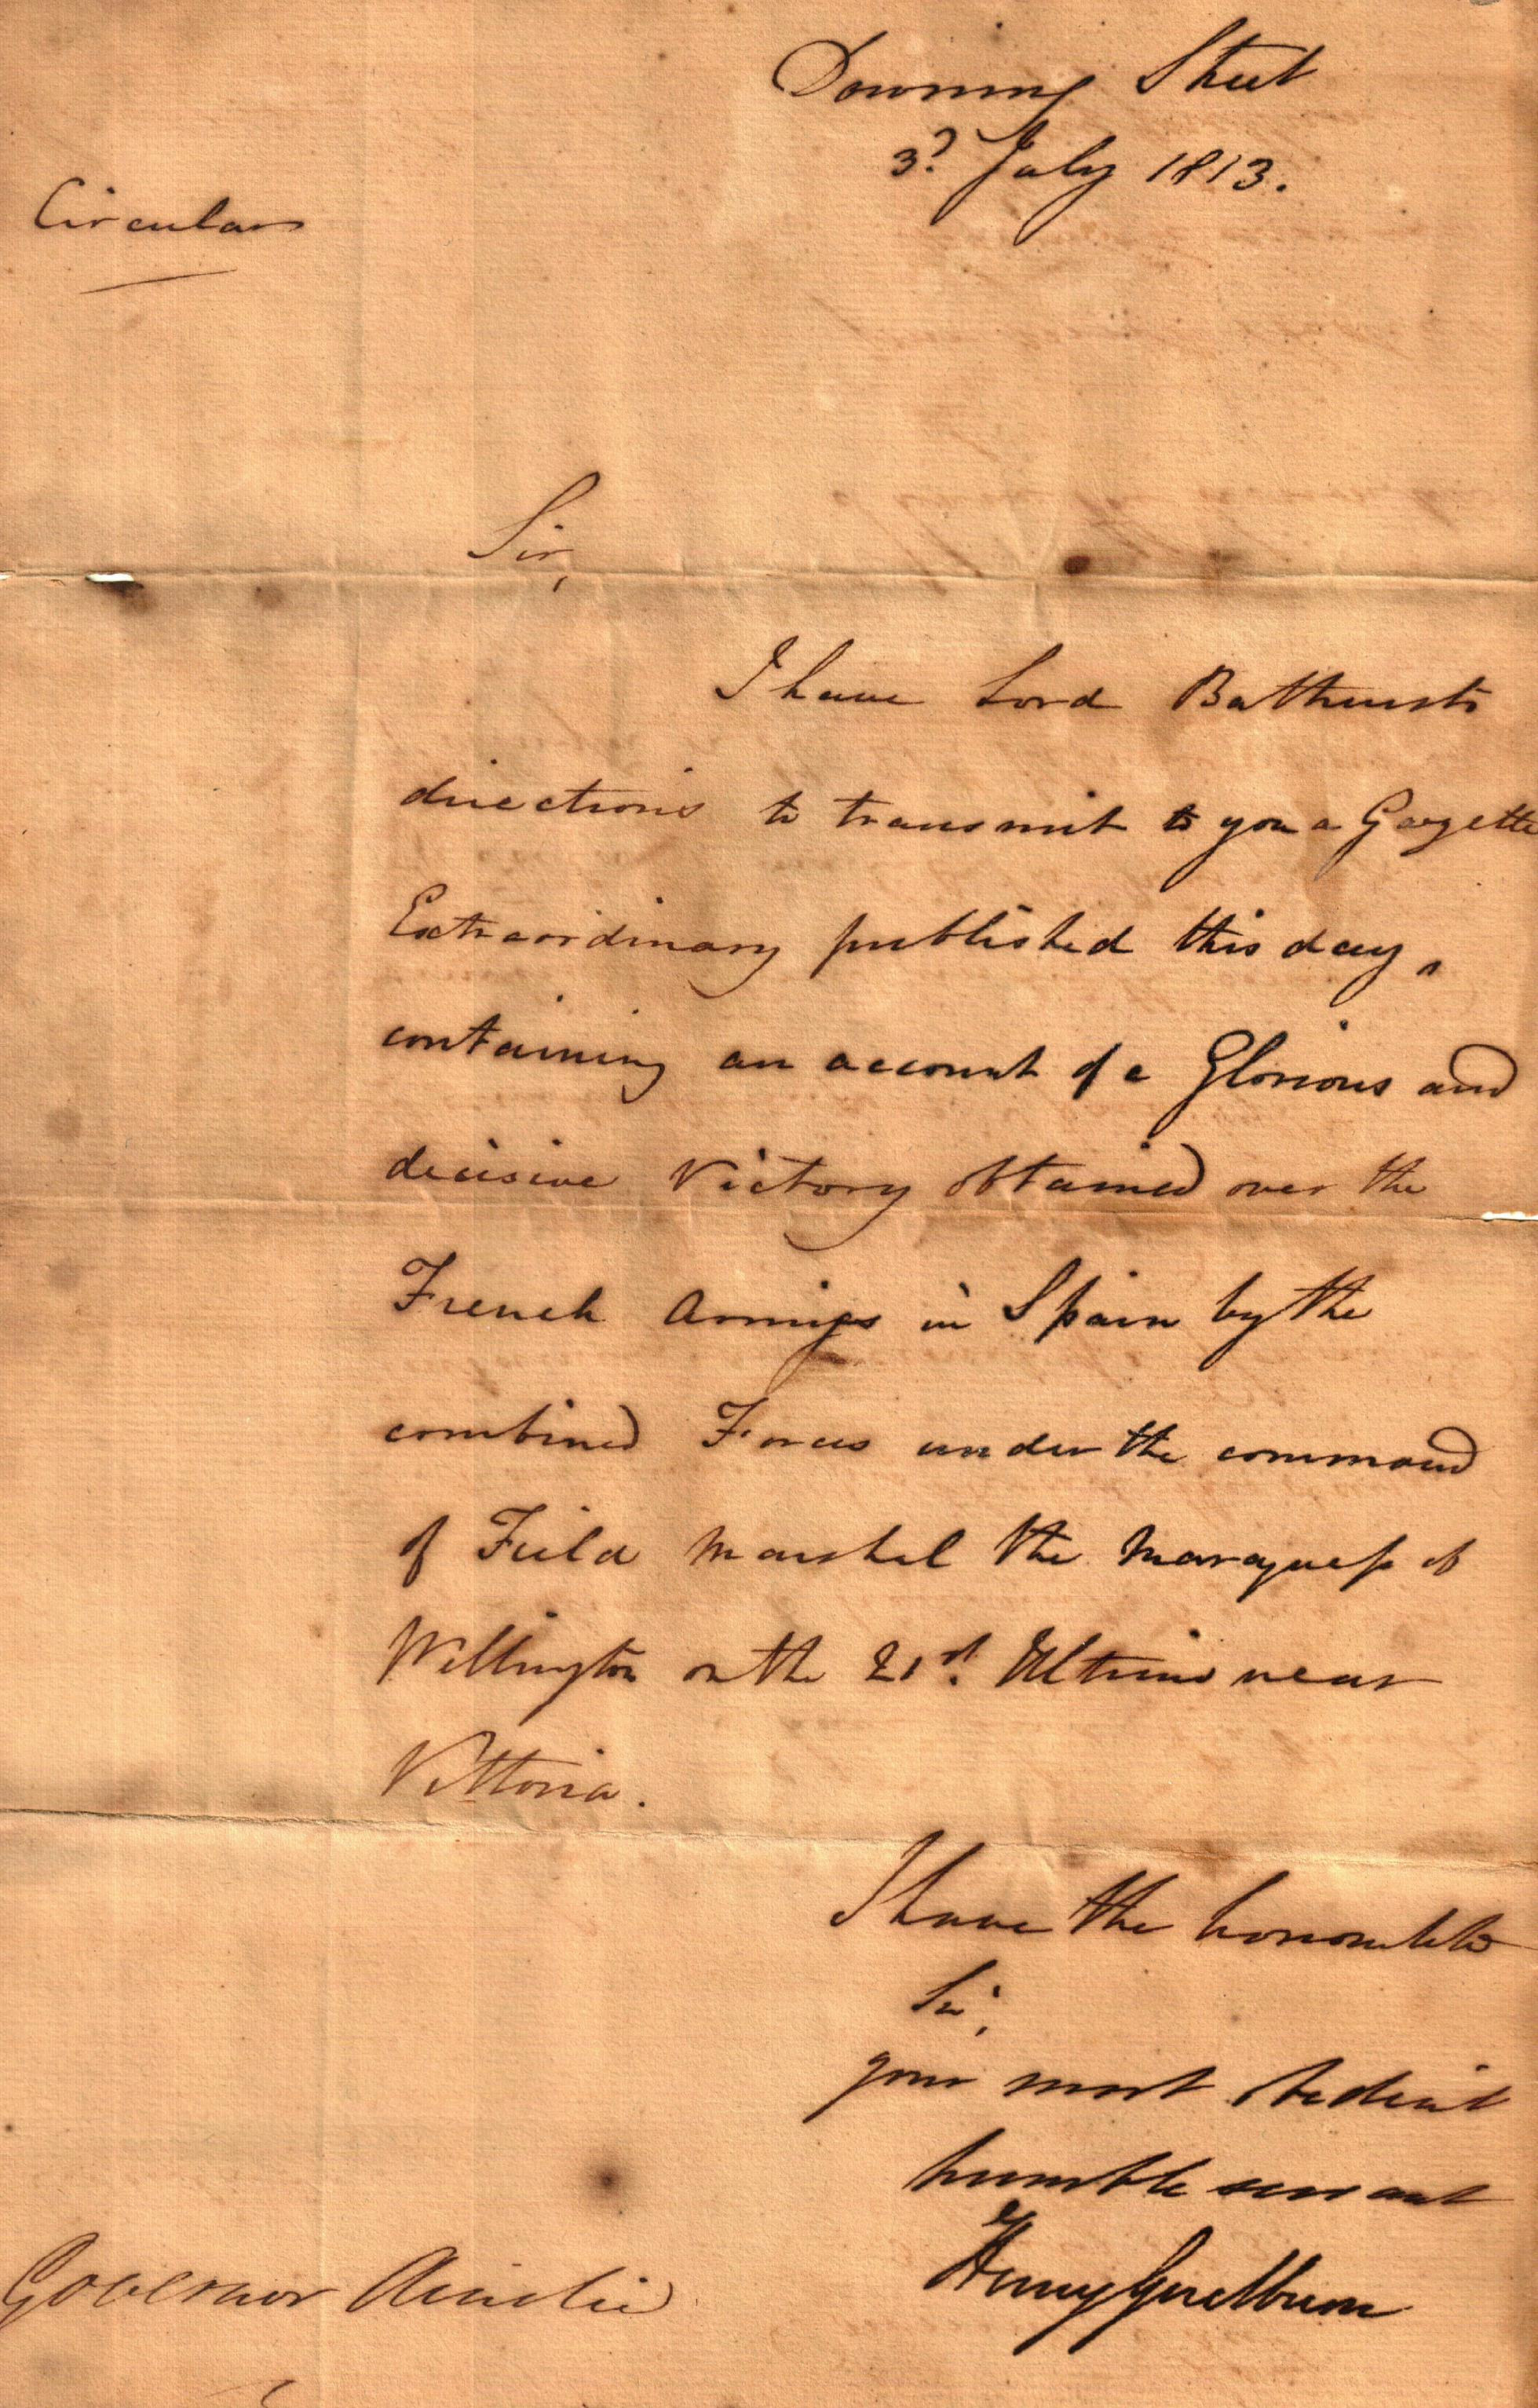 Downing Street
3d. July 1813.
Circular
Sir,
I have Lord Bathursts
directions to transmit to you a Gazette
Extraordinary published this day,
containing an account of a Glorious and
decisive Victory obtained over the
French Armies in Spain by the
combined Forces under the command
of Field Marshal the Marquess of
Wellington on the 21st. Ultimo near
Vittoria.
I have the honor to be
Sir,
your most obedient
humble servant
Henry Goulburn
Governor Ainslie